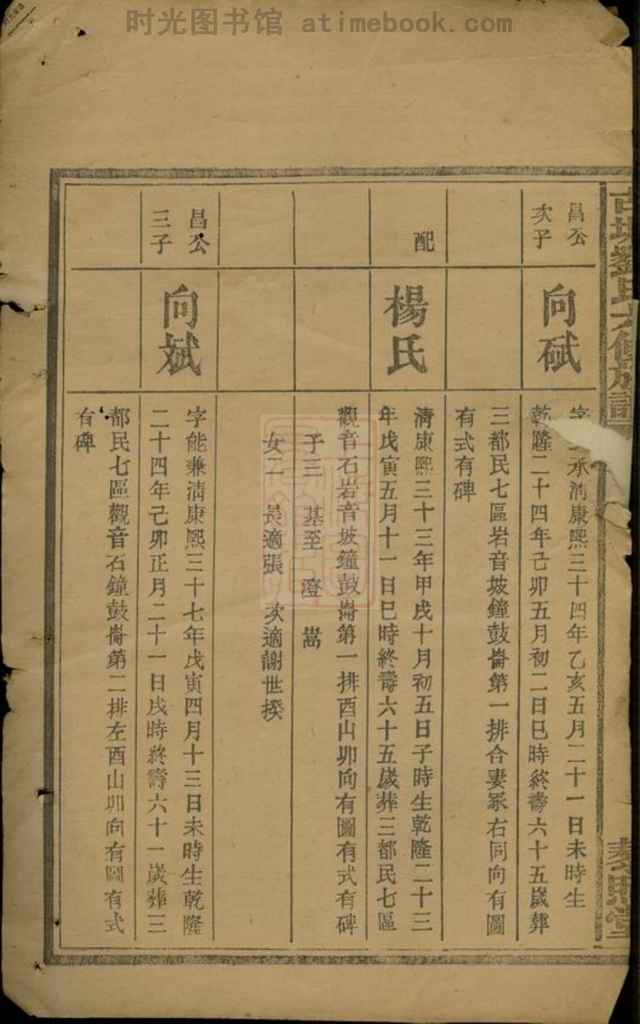 时光图书馆 atimebook.com
昌公
次子
向碔
字
承淸康熙三十四年乙亥五月二十一日未時生
乾隆二十四年己卯五月初二日巳時終壽六十五歲葬
三都民七區岩音坡鐘鼓崙第一排合妻冢右同向有圖
有式有碑
配
楊氏
淸康熙三十三年甲戌十月初五日子時生乾隆二十三
年戊寅五月十一日巳時終壽六十五歲葬三都民七區
觀音石岩音坡鐘鼓崙第一排酉山卯向有圖有式有碑
子三 基至 澄 嵩
女二 長適張 次適謝世揆
昌公
三子
向斌
字能兼淸康熙三十七年戊寅四月十三日未時生乾隆
二十四年己卯正月二十一日戌時終壽六十一歲葬三
都民七區觀音石鐘鼓崙第二排左酉山卯向有圖有式
有碑